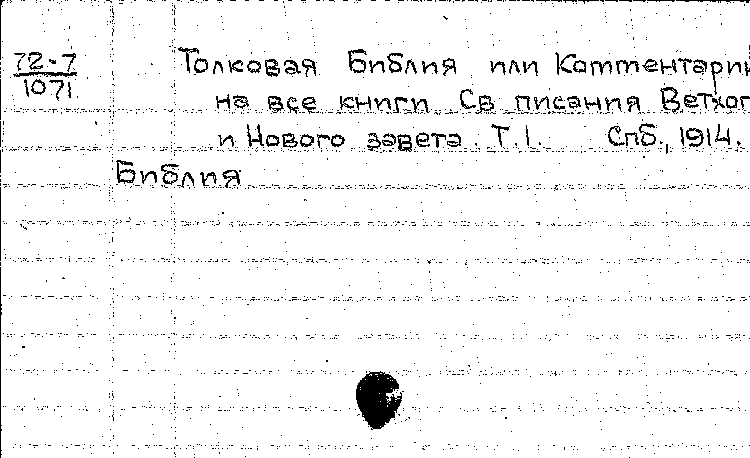 72-7
1071
Толковая Библия или Комментарии
на все книги Св писания Ветхог
и Нового завета. Т. I. Спб., 1914.
Библия